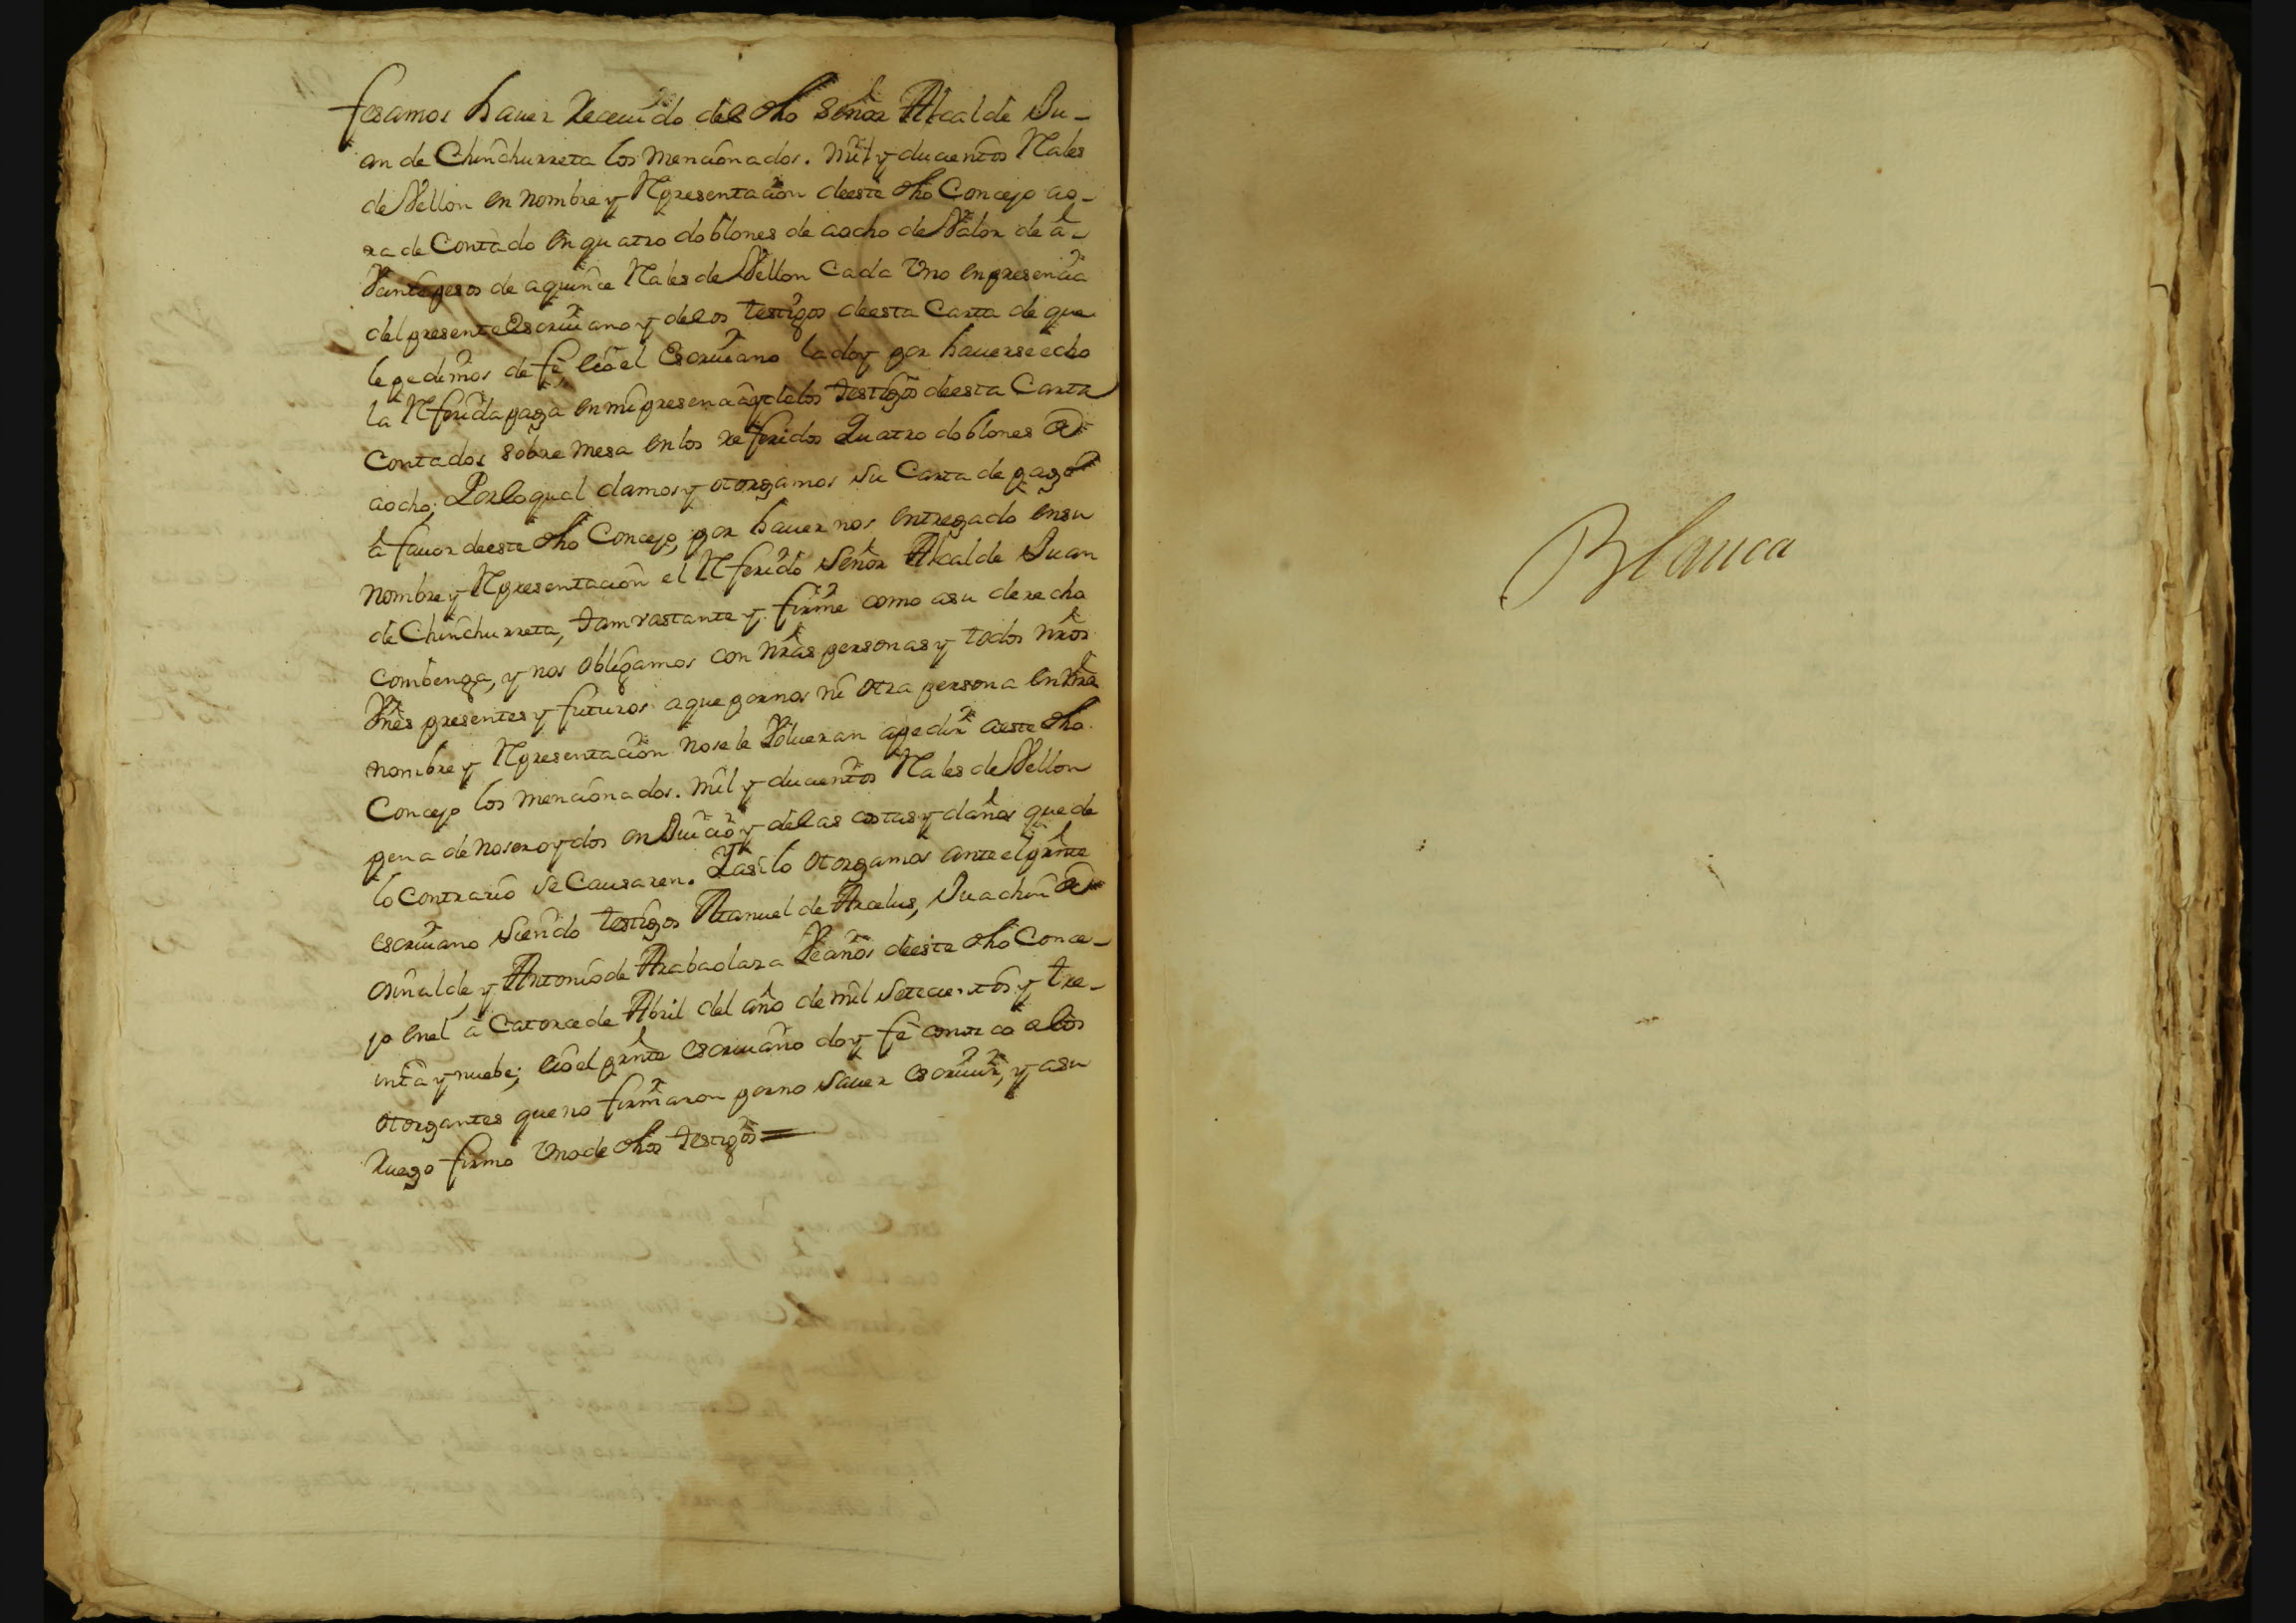 fesamos hauer Receuido del dho Señor Alcalde Ju-
an de Chinchurreta los mencionados. mil y ducientos Rales
de Vellon en nombre y Representacion de este dho Concejo ao-
ra de Contado en quatro doblones de aocho de Valor de â
Vainte pesos de aquince Rales de Vellon Cada Uno en presencia
del presente Escriuano y de los testigos de esta Carta de que
le pedimos de fê, eió el Escriuano la doy por hauerse echo
la Referida paga en mi presencia y de los testigos de esta Carta
Contados sobre mesa en los referidos Quatro doblones de
aocho; Por lo qual damos y otorgamos su Carta de pago
â fauor de este dho Concejo, por hauernos entregado en su
nombre y Representacion el Referido Señor Alcalde Juan
de Chinchurreta, tam vastante y firme como a su derecho
combenga, y nos obligamos con nras personas y todos nros
Vnes presentes y futuros a que por nos ni otra persona en nra
nombre y Representacion no se le Volueran a pedir a este dho
Concejo los mencionados. mil y ducientos Rales de Vellon
pena de no ser oydos en Juicio y de las costas y daños que de
lo Contrario se Causaren. Y asi lo otorgamos ante el prnte
escriuano siendo testigos Manuel de Arcelus, Juachin de
Orinalde, y Antonio de Arabaolaza Veçinos de este dho Conce-
jo en el â Catorce de Abril del año de mil setecientos y tre-
inta y nuebe; eió el prnte escriuano doy fê conozco a los
otorgantes que no firmaron por no sauer escriuir, y a su
Ruego firmo Uno de dhos testigos =
Blanca